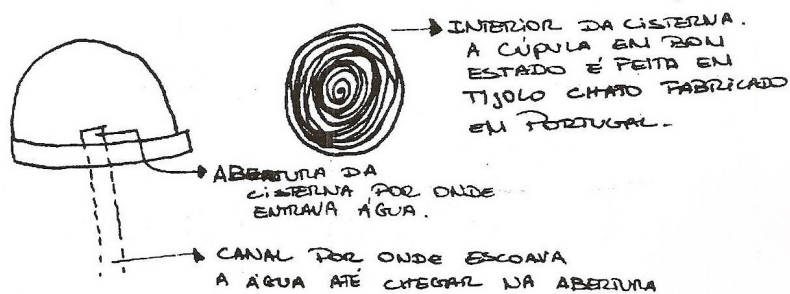 INTERIOR DA CISTERNA.
A CÚPULA EM BOM
ESTADO É FEITA EM
TIJOLO CHATO FABRICADO
EM PORTUGAL.
ABERTURA DA
CISTERNA POR ONDE
ENTRAVA ÁGUA.
CANAL POR ONDE ESCOAVA
A ÁGUA ATÉ CHEGAR NA ABERTURA